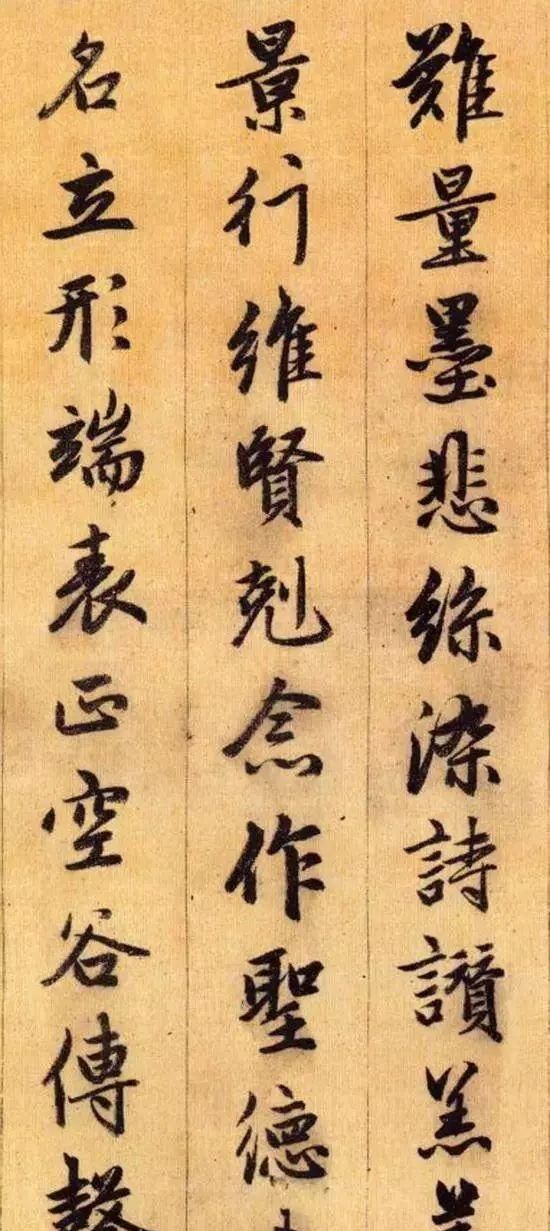 難量墨悲絲染詩讃羔
景行維賢剋念作聖德
名立形端表正空谷傳聲